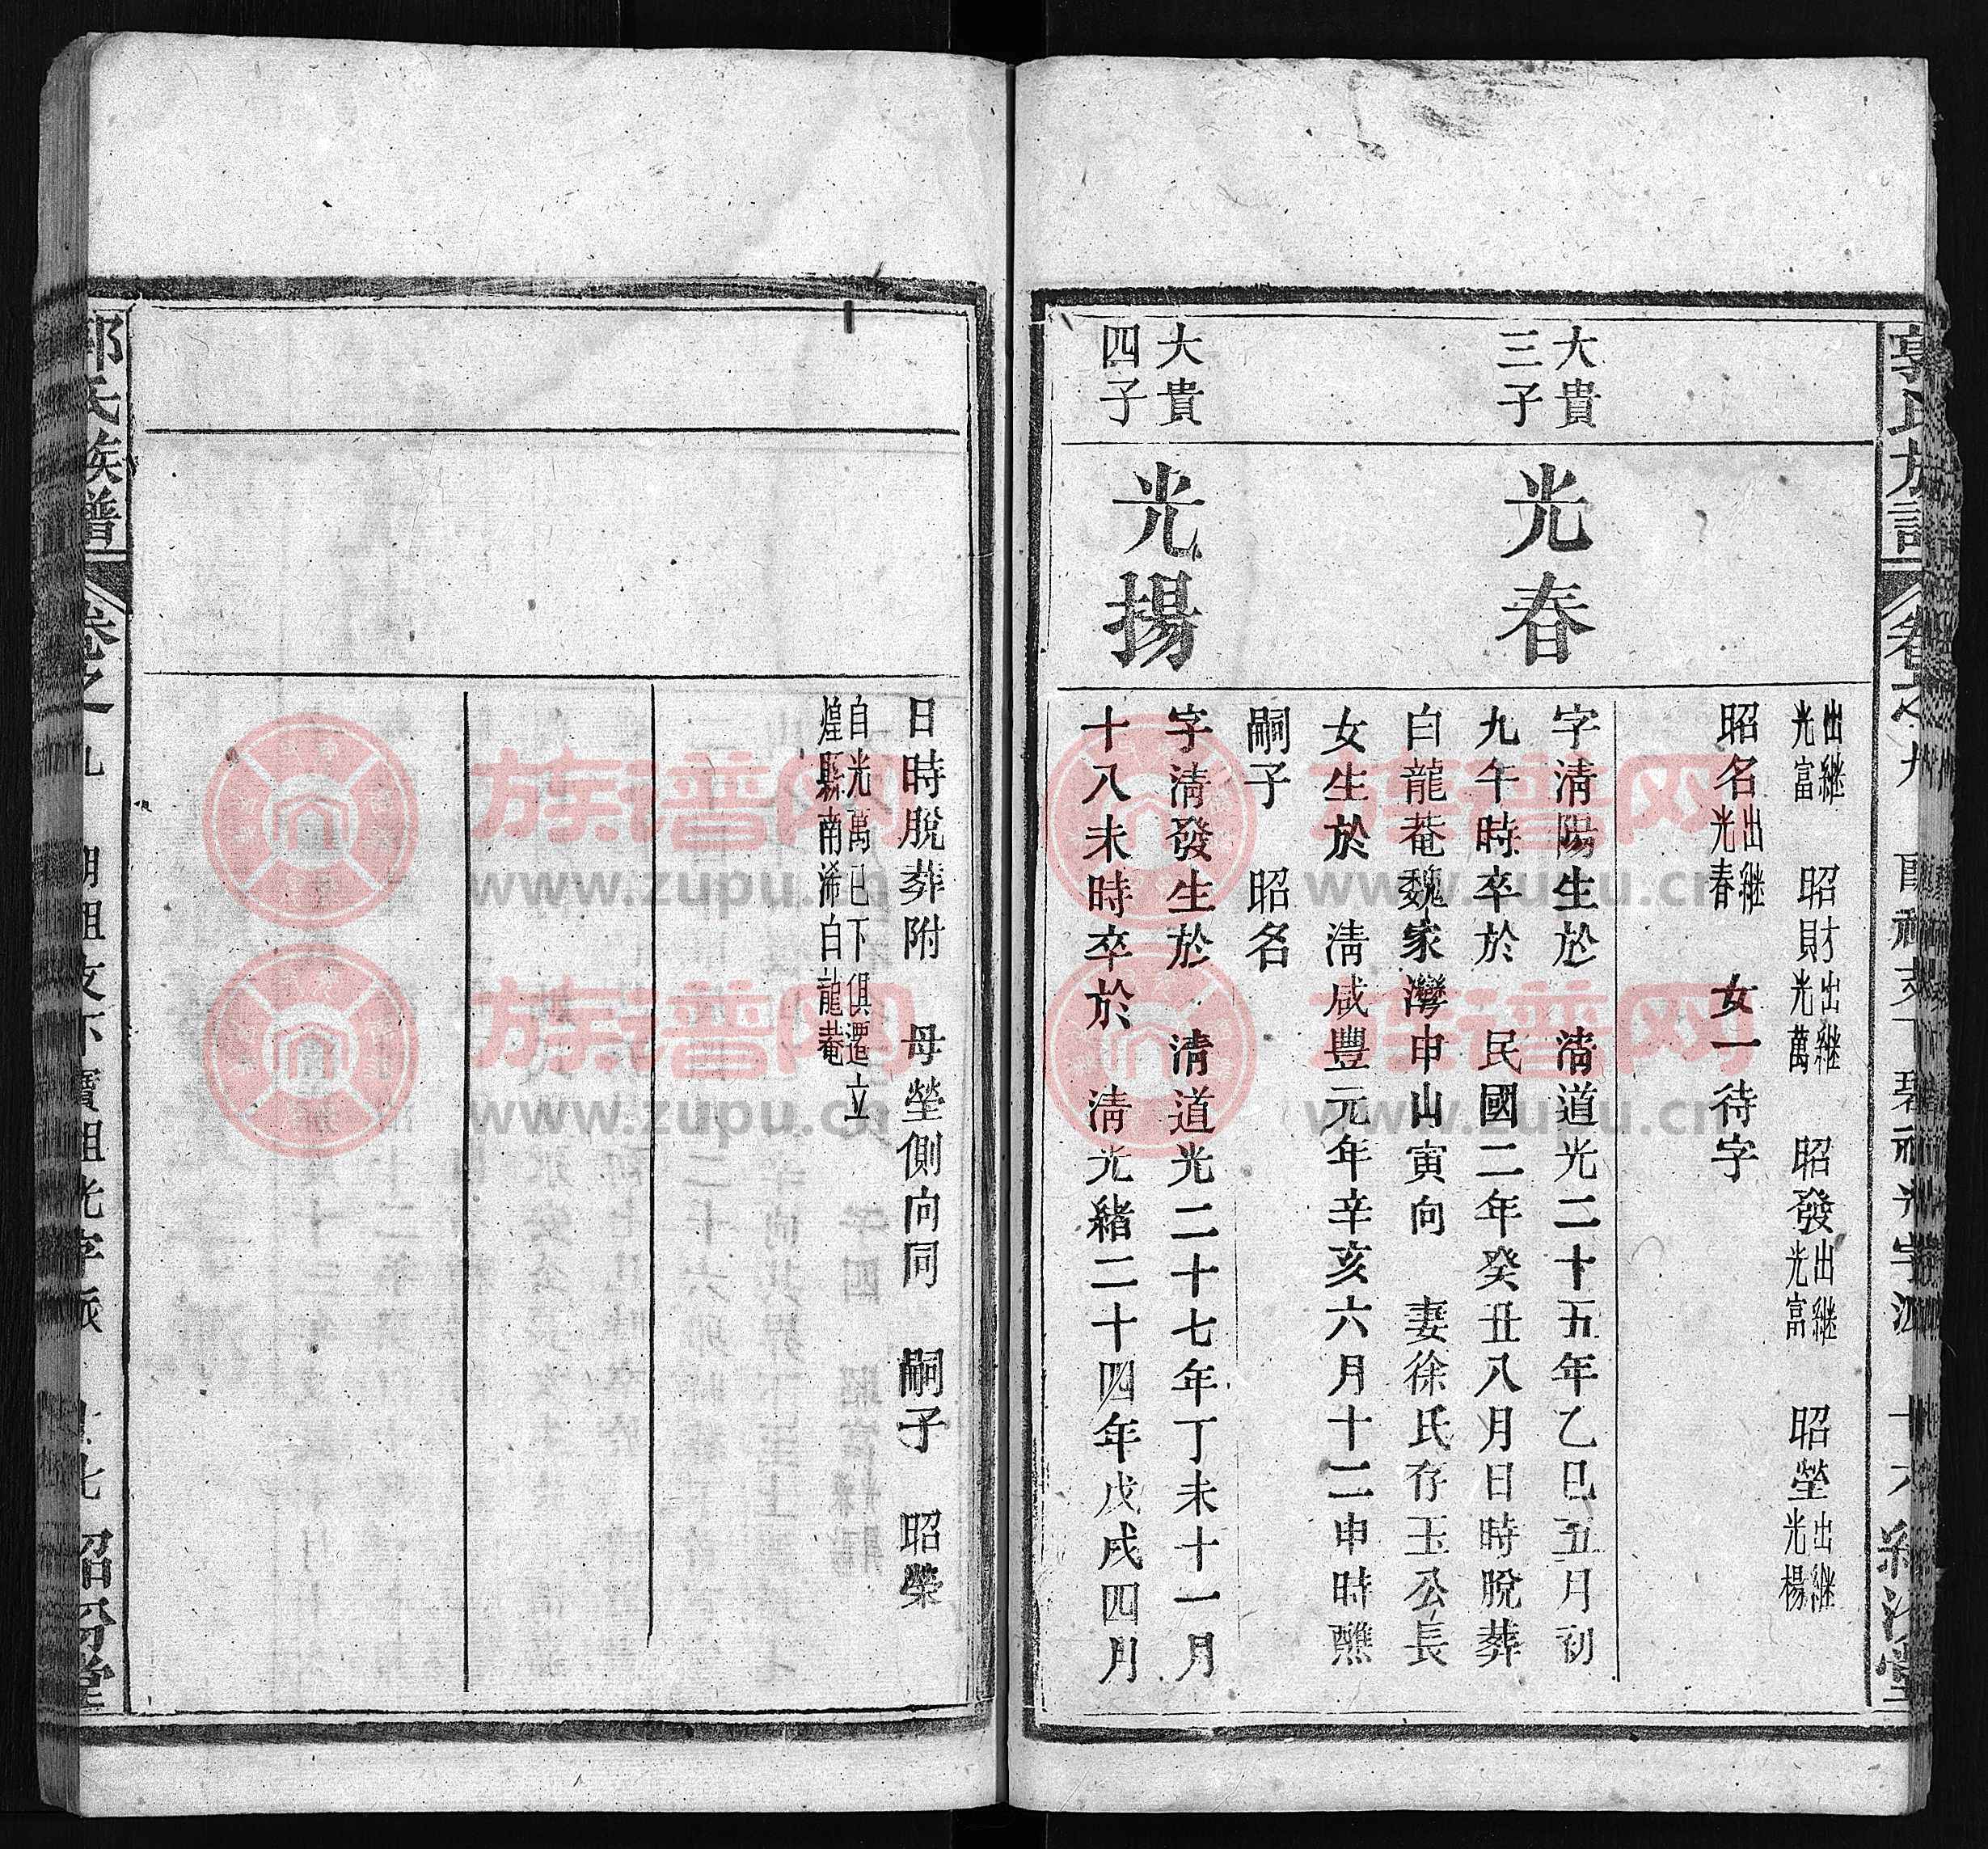 出繼光富　昭財出繼光萬　昭發出繼光富　昭塋出繼光楊
昭名出繼光春　女一待字
大貴三子
光春
字清陽生於　清道光二十五年乙巳五月初
九午時卒於　民國二年癸丑八月日時脫葬
白龍菴魏家灣申山寅向　妻徐氏存玉公長
女生於　清咸豐元年辛亥六月十二申時醮
嗣子　昭名
大貴四子
光揚
字清發生於　清道光二十七年丁未十一月
十八未時卒於　清光緒二十四年戊戌四月
日時脫葬附　母塋側向同　嗣子　昭榮
自光萬已下俱遷立
煌縣南浠白龍菴
郭氏族譜
卷之九
族譜网
www.zupu.cn
族譜网
www.zupu.cn
族譜网
www.zupu.cn
族譜网
www.zupu.cn